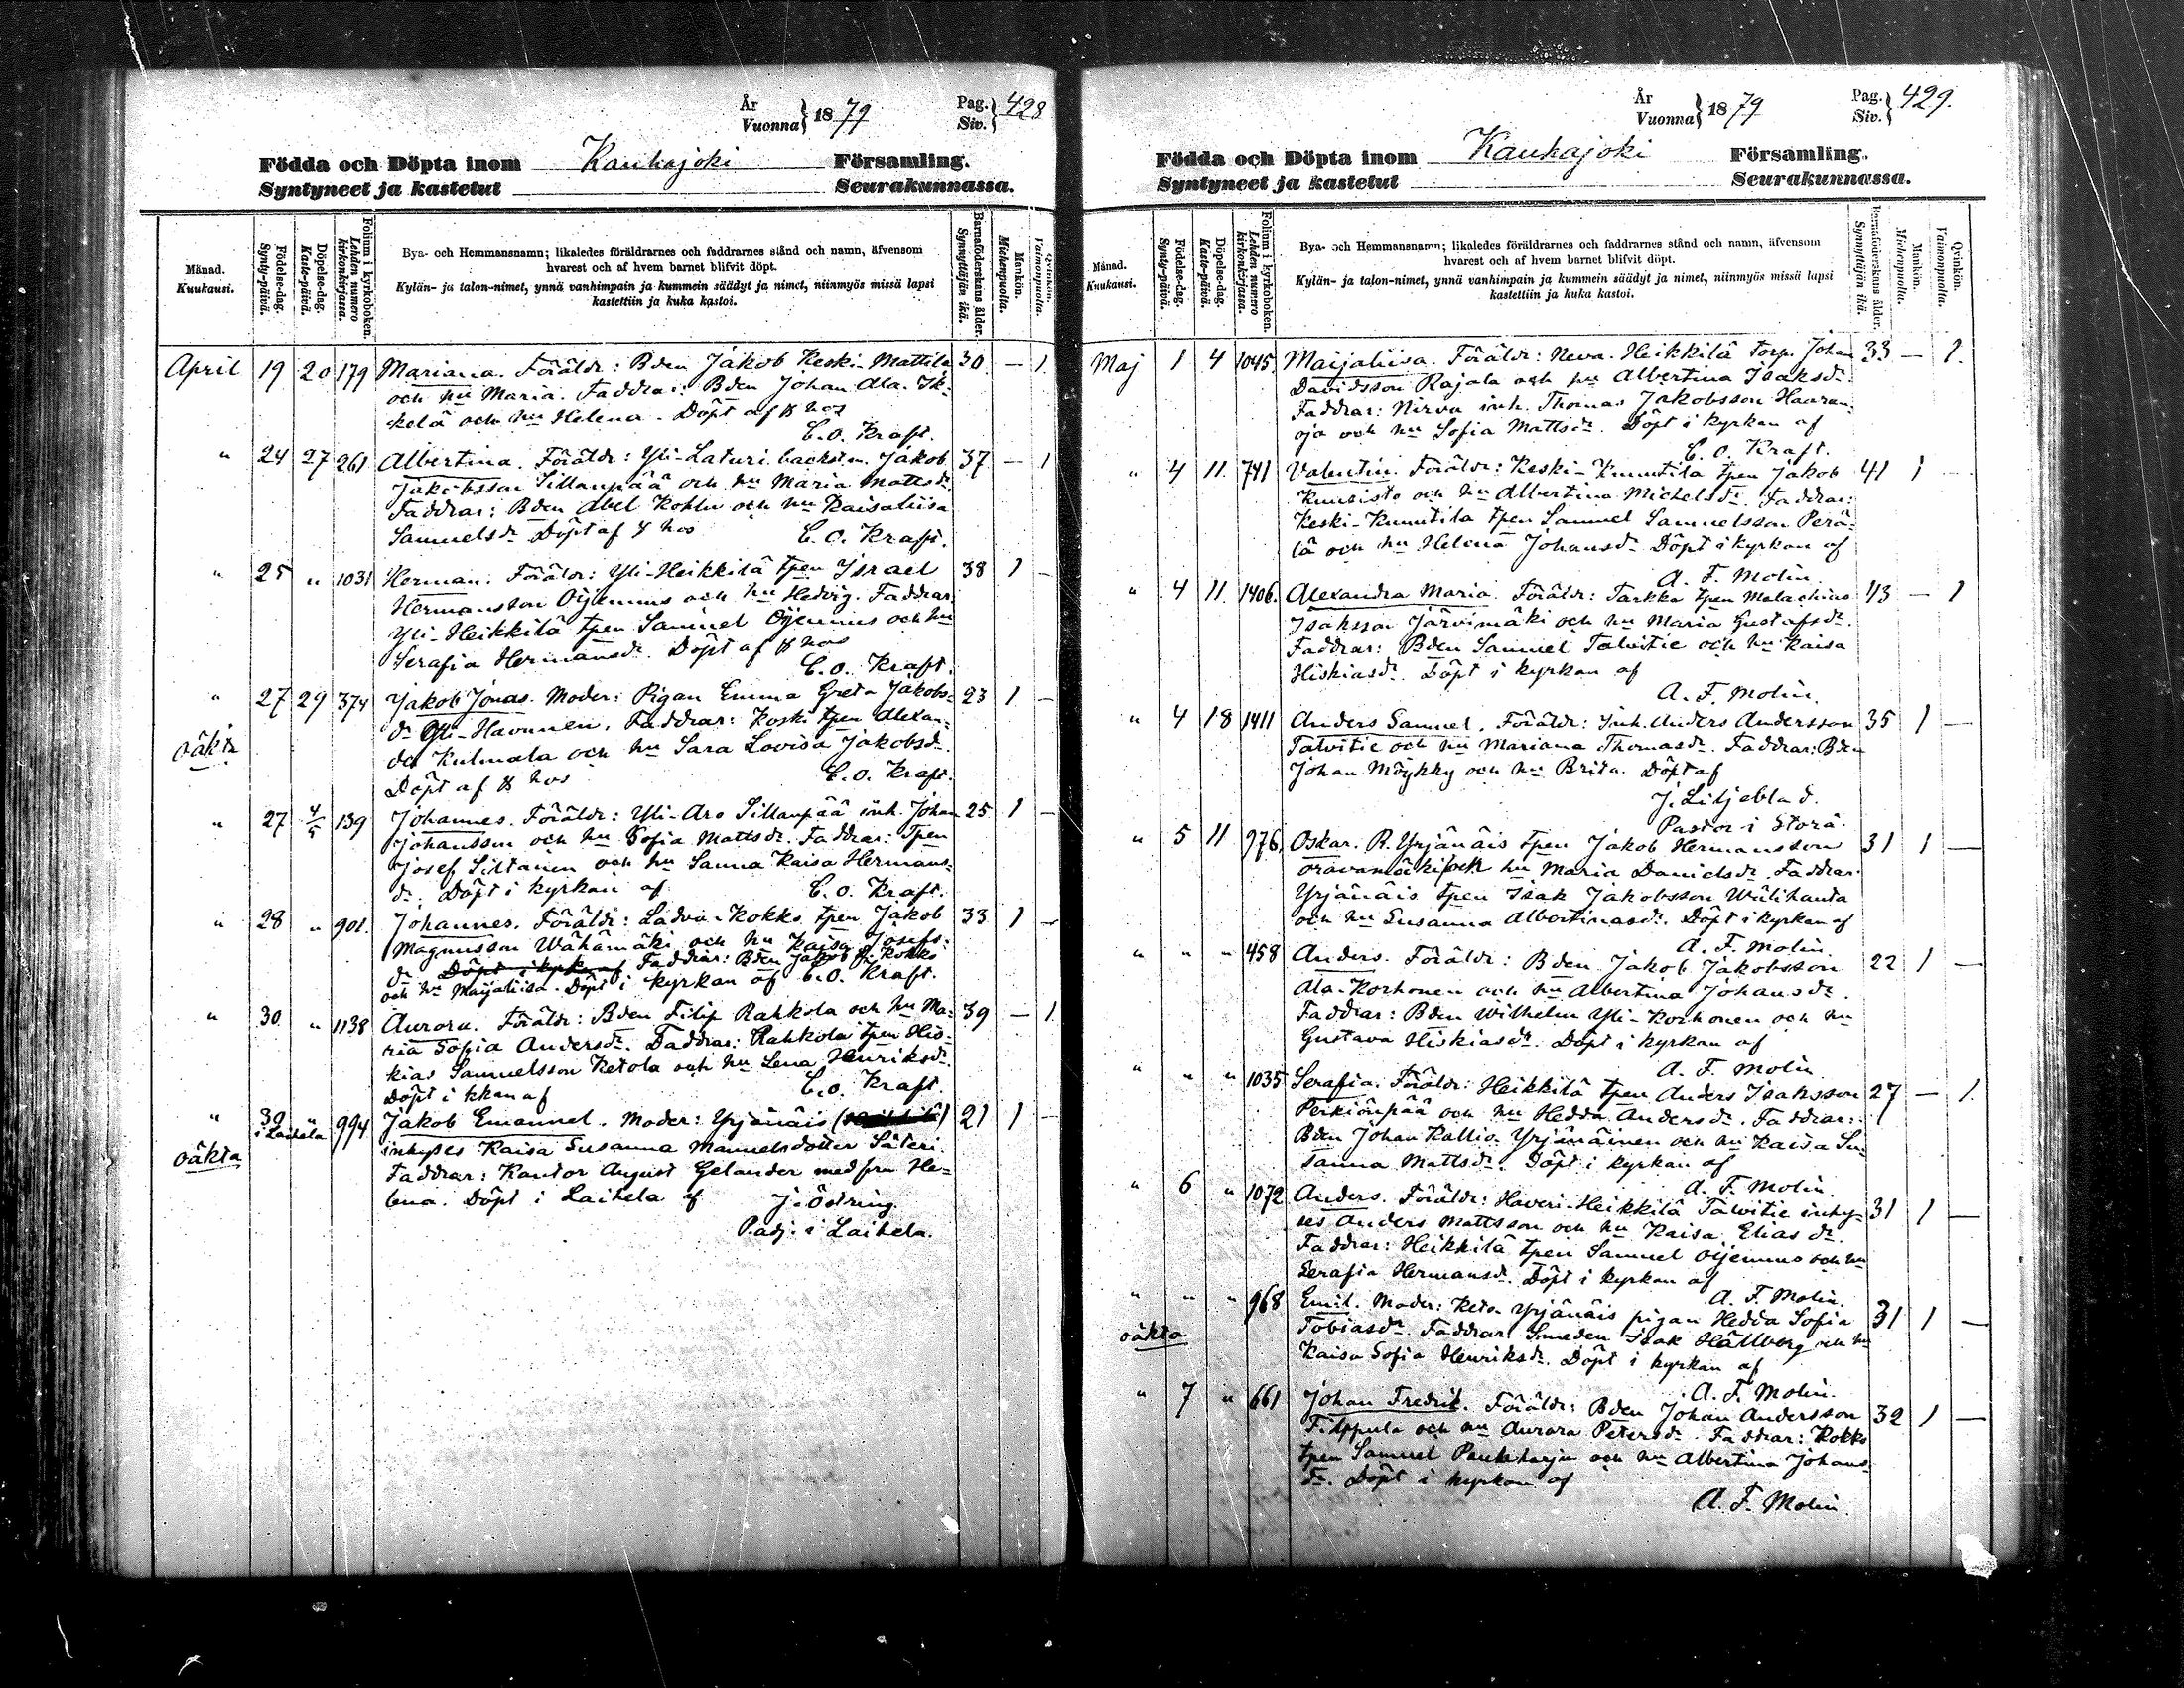 År
Vuonna} 1879
Pag.
Siv.} 428
Födda och Döpta inom Kauhajoki Församling.
Syntyneet ja kastetut Seurakunnassa.
Månad.
Kuukausi.
Födelse-dag.
Synty-päivä.
Döpelse-dag.
Kaste-päivä.
Folium i kyrkoboken.
Lehden numero kirkonkirjassa.
Bya- och Hemmansnamn; likaledes föräldrarnes och faddrarnes stånd och namn, äfvensom
hvarest och af hvem barnet blifvit döpt.
Kylän- ja talon-nimet, ynnä vanhimpain ja kummein säädyt ja nimet, niinmyös missä lapsi
kastettiin ja kuka kastoi.
Barnaföderskans ålder.
Synnyttäjän ikä.
Mankön.
Miehenpuolta.
Qvinkön.
Vaimonpuolta.
April 19 20 179 Mariana. Föräldr: Bden Jakob Keski-Mattila 30 — 1
och hu Maria. Faddrar: Bden Johan Ala-Ik-
kelä och hu Helena. Döpt af & hos
C. O. Kraft.
" 24 27 261 Albertina. Föräldr: Yli-Laturi backst.m. Jakob 37 — 1
Jakobsson Sillanpää och hu Maria Mattsdr.
Faddrar: Bden Abel Kohlu och hu Kaisaliisa
Samuelsdr Döpt af & hos C. O. Kraft.
" 25 " 1031 Herman. Föräldr: Yli-Heikkilä tpen Israel 38 1 —
Hermansson Öijennus och hu Hedvig. Faddrar
Yli-Heikkilä tpen Samuel Öijennus och hu
Serafia Hermansdr. Döpt af & hos
C. O. Kraft.
" 27 29 374 Jakob Jonas. Moder: Pigan Emma Greta Jakobs- 23 1 —
oäkta
dr Yli-Havunen. Faddrar: Koski tpen Alexan-
der Kulmala och hu Sara Lovisa Jakobsdr.
Döpt af & hos C. O. Kraft.
" 27 4/5 139 Johannes. Föräldr: Yli-Aro Sillanpää inh. Johan 25 1 —
Johansson och hu Sofia Mattsdr. Faddrar: Tpen
Josef Siltanen och hu Sanna Kaisa Hermans-
dr. Döpt i kyrkan af C. O. Kraft.
" 28 " 901. Johannes. Föräldr: Ladva-Kokko tpen Jakob 33 1 —
Magnusson Wähämäki och hu Kaisa Josefs-
dr Döpt i kyrkan af Faddrar: Bden Jakob Kokko
och hu Maijaliisa. Döpt i kyrkan af C. O. Kraft.
" 30 " 1138 Aurora. Föräldr: Bden Filip Rahkola och hu Ma- 39 — 1
ria Sofia Andersdr. Faddrar: Rahkola tpen His-
kias Samuelsson Ketola och hu Lena Henriksdr.
Döpt i kkan af C. O. Kraft.
" 30 " i Laihela 994 Jakob Emanuel. Moder: Yrjänäis 21 1 —
oäkta
inhyses Kaisa Susanna Manuelsdotter Säteri.
Faddrar: Kantor August Gelander med fru He-
lena. Döpt i Laihela af J. Östring.
P.adj. i Laihela.
År
Vuonna} 1879
Pag.
Siv.} 429.
Födda och Döpta inom Kauhajoki Församling.
Syntyneet ja kastetut Seurakunnassa.
Månad.
Kuukausi.
Födelse-dag.
Synty-päivä.
Döpelse-dag.
Kaste-päivä.
Folium i kyrkoboken.
Lehden numero kirkonkirjassa.
Bya- och Hemmansnamn; likaledes föräldrarnes och faddrarnes stånd och namn, äfvensom
hvarest och af hvem barnet blifvit döpt.
Kylän- ja talon-nimet, ynnä vanhimpain ja kummein säädyt ja nimet, niinmyös missä lapsi
kastettiin ja kuka kastoi.
Barnaföderskans ålder.
Synnyttäjän ikä.
Mankön.
Miehenpuolta.
Qvinkön.
Vaimonpuolta.
Maj 1 4 1045 Maijaliisa. Föräldr: Neva-Heikkilä torp. Johan 33 — 1.
Davidsson Rajala och hu Albertina Isaksdr.
Faddrar: Nirva inh. Thomas Jakobsson Haaran-
oja och hu Sofia Mattsdr. Döpt i kyrkan af
C. O. Kraft.
" 4 11. 741 Valentin. Föräldr: Keski-Knuutila tpen Jakob 41 1 —
Kuusisto och hu Albertina Michelsdr. Faddrar:
Keski-Knuutila tpen Samuel Samuelsson Perä-
lä och hu Helena Johansdr Döpt i kyrkan af
A. F. Molin.
" 4 11. 1406. Alexandra Maria. Föräldr: Tarkka tpen Malachias 43 — 1
Isaksson Järvimäki och hu Maria Gustafsdr.
Faddrar: Bden Samuel Talvitie och hu Kaisa
Hiskiasdr. Döpt i kyrkan af
A. F. Molin.
" 4 18 1411 Anders Samuel. Föräldr: Inh. Anders Andersson 35 1 —
Talvitie och hu Mariana Thomasdr. Faddrar: Bden
Johan Möykky och hu Brita. Döpt af
J. Liljeblad.
Pastor i Storå.
" 5 11 976. Oskar. R. Yrjänäis tpen Jakob Hermansson 31 1 —
Oravamäki och hu Maria Danielsdr. Faddrar
Yrjänäis tpen Isak Jakobsson Wälihauta
och hu Susanna Albertinasdr. Döpt i kyrkan af
A. F. Molin.
" " " 458 Anders. Föräldr: Bden Jakob Jakobsson 22 1 —
Ala-Korhonen och hu Albertina Johansdr.
Faddrar: Bden Wilhelm Yli-Korhonen och hu
Gustava Hiskiasdr. Döpt i kyrkan af
A. F. Molin.
" " " 1035 Serafia. Föräldr: Heikkilä tpen Anders Isaksson 27 — 1.
Perkiönpää och hu Hedda Andersdr. Faddrar:
Bden Johan Kallio-Yrjänäinen och hu Kaisa Su-
sanna Mattsdr. Döpt i kyrkan af
A. F. Molin.
" 6 " 1072 Anders. Föräldr: Haveri-Heikkilä Talvitie inhy- 31 1 —
ses Anders Mattsson och hu Kaisa Eliasdr.
Faddrar: Heikkilä tpen Samuel Öijennus och hu
Serafia Hermansdr. Döpt i kyrkan af
A. F. Molin.
" " " 968 Emil. Moder: Keto-Yrjänäis pigan Hedda Sofia 31 1 —
oäkta
Tobiasdr. Faddrar: Smeden Isak Hällberg och hu
Kaisa Sofia Henriksdr. Döpt i kyrkan af
A. F. Molin.
" 7 " 661 Johan Fredrik. Föräldr: Bden Johan Andersson 32 1 —
Filppula och hu Aurora Petersdr. Faddrar: Kokko
tpen Samuel Paukkharju och hu Albertina Johans-
dr. Döpt i kyrkan af
A. F. Molin.